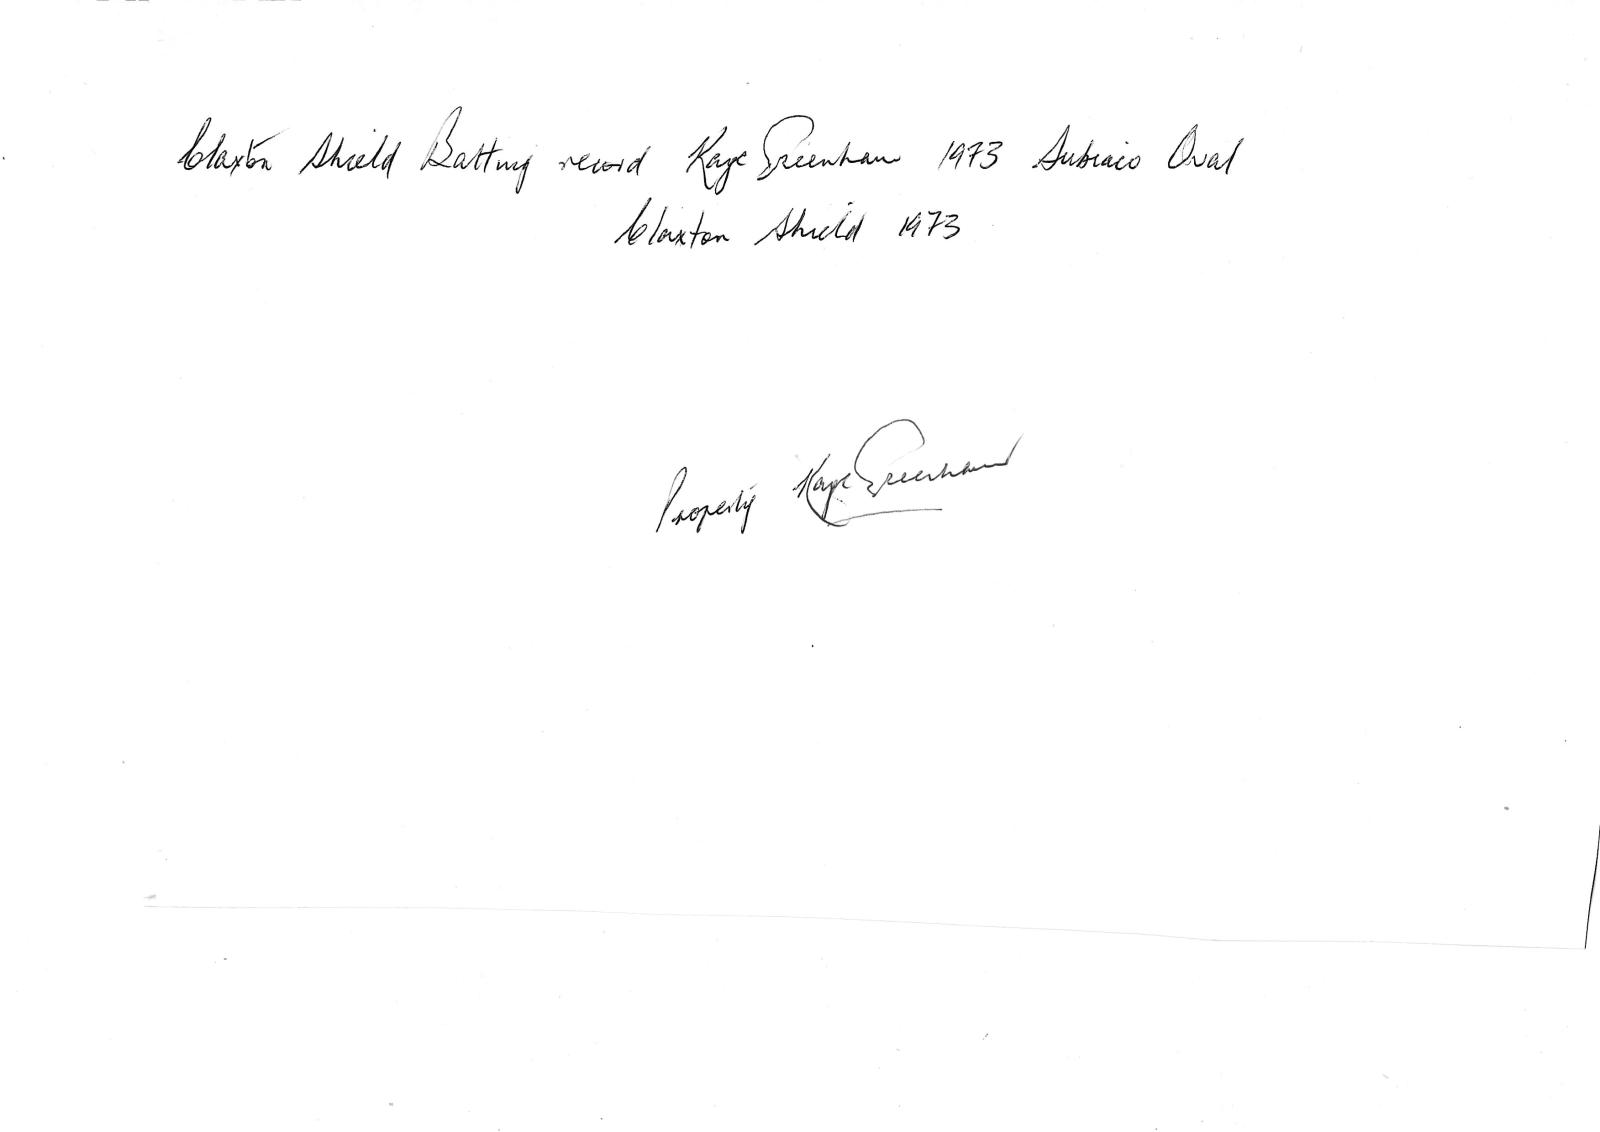 Claxton Shield Batting record Kaye Greenham 1973 Subiaco Oval
Claxton Shield 1973
Property Kaye Greenham